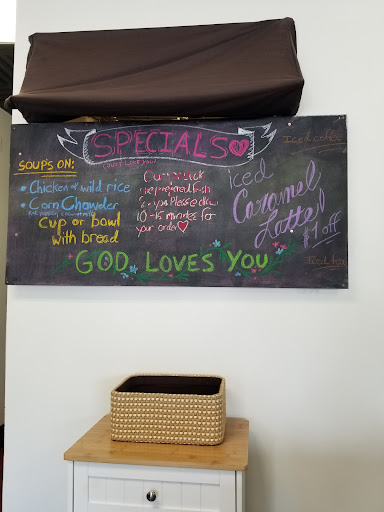 SPECIALS
SOUPS ON:
• Chicken & wild rice
• Corn Chowder
Cup or bowl
with bread
Our
Please allow
10-15 minutes for
your order
iced
Caramel
Latte!
$1 off
Iced coffee
Iced tea
GOD LOVES YOU